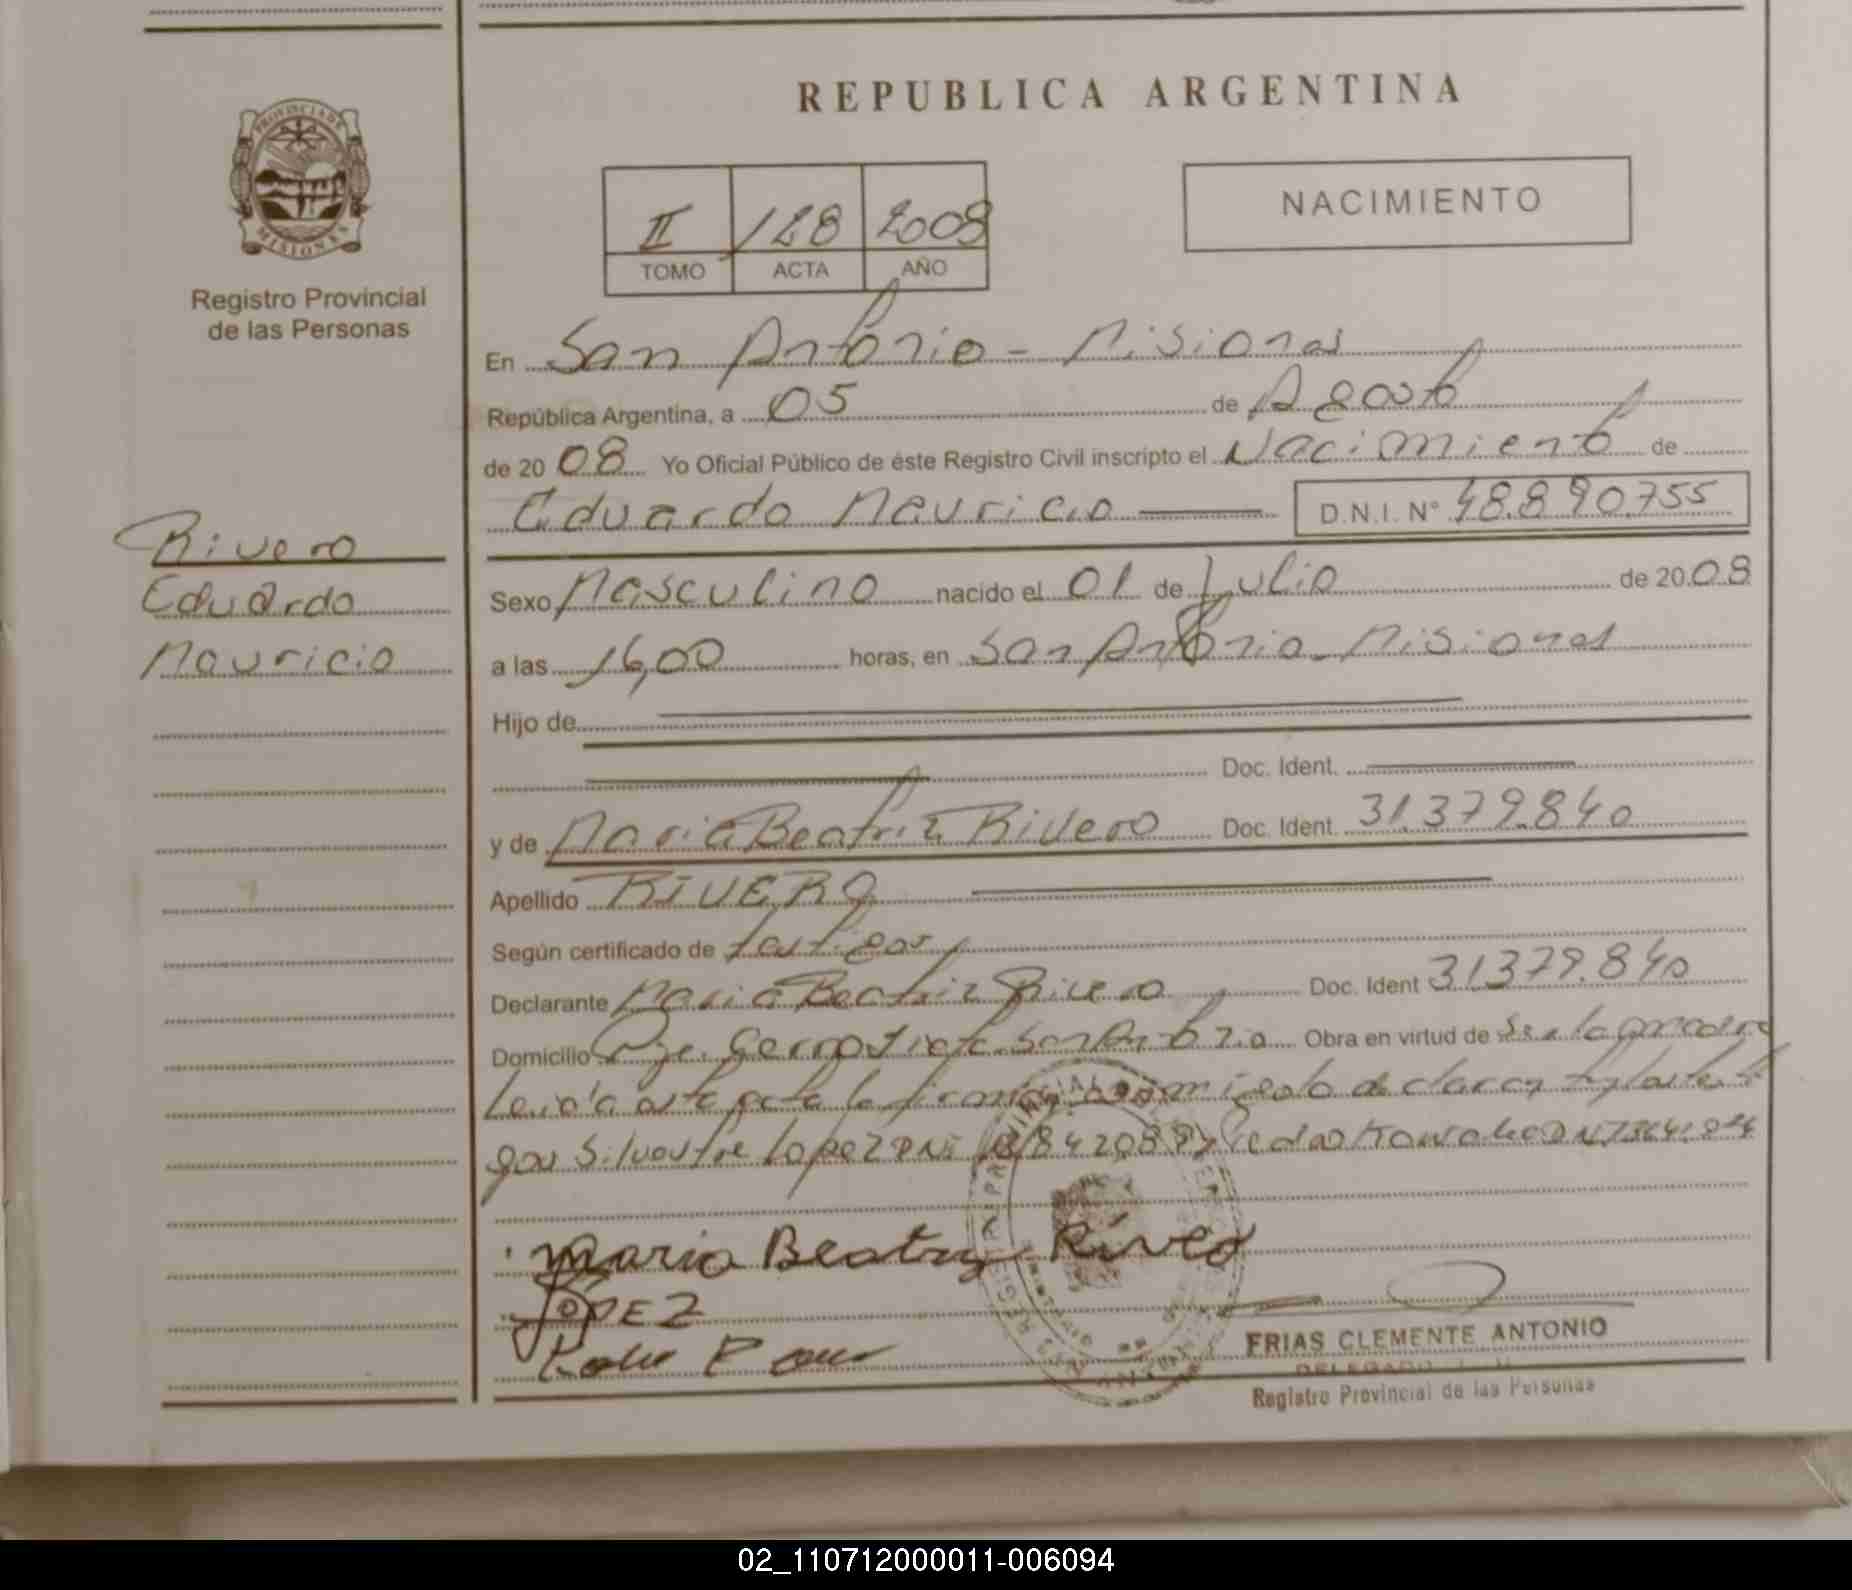 REPUBLICA ARGENTINA
PROVINCIA DE
MISIONES
Registro Provincial
de las Personas
II 128 2008
TOMO ACTA AÑO
NACIMIENTO
En San Antonio - Misiones
República Argentina, a 05 de Agosto
de 20 08 Yo Oficial Público de éste Registro Civil inscripto el Nacimiento de
Eduardo Mauricio D.N.I. N° 48.890.755
Rivero
Eduardo
Mauricio
Sexo Masculino nacido el 01 de Julio de 20 08
a las 16,00 horas, en San Antonio - Misiones
Hijo de
Doc. Ident.
y de Maria Beatriz Rivero Doc. Ident. 31.379.840
Apellido RIVERO
Según certificado de testigos
Declarante Maria Beatriz Rivero Doc. Ident 31.379.840
Domicilio San Antonio Obra en virtud de ser la madre
Leida esta acta la firman conmigo la declarante y los testi
gos Silvestre Lopez DNI
Maria Beatriz Rivero
LÓPEZ
FRIAS CLEMENTE ANTONIO
DELEGADO
Registro Provincial de las Personas
02_110712000011-006094